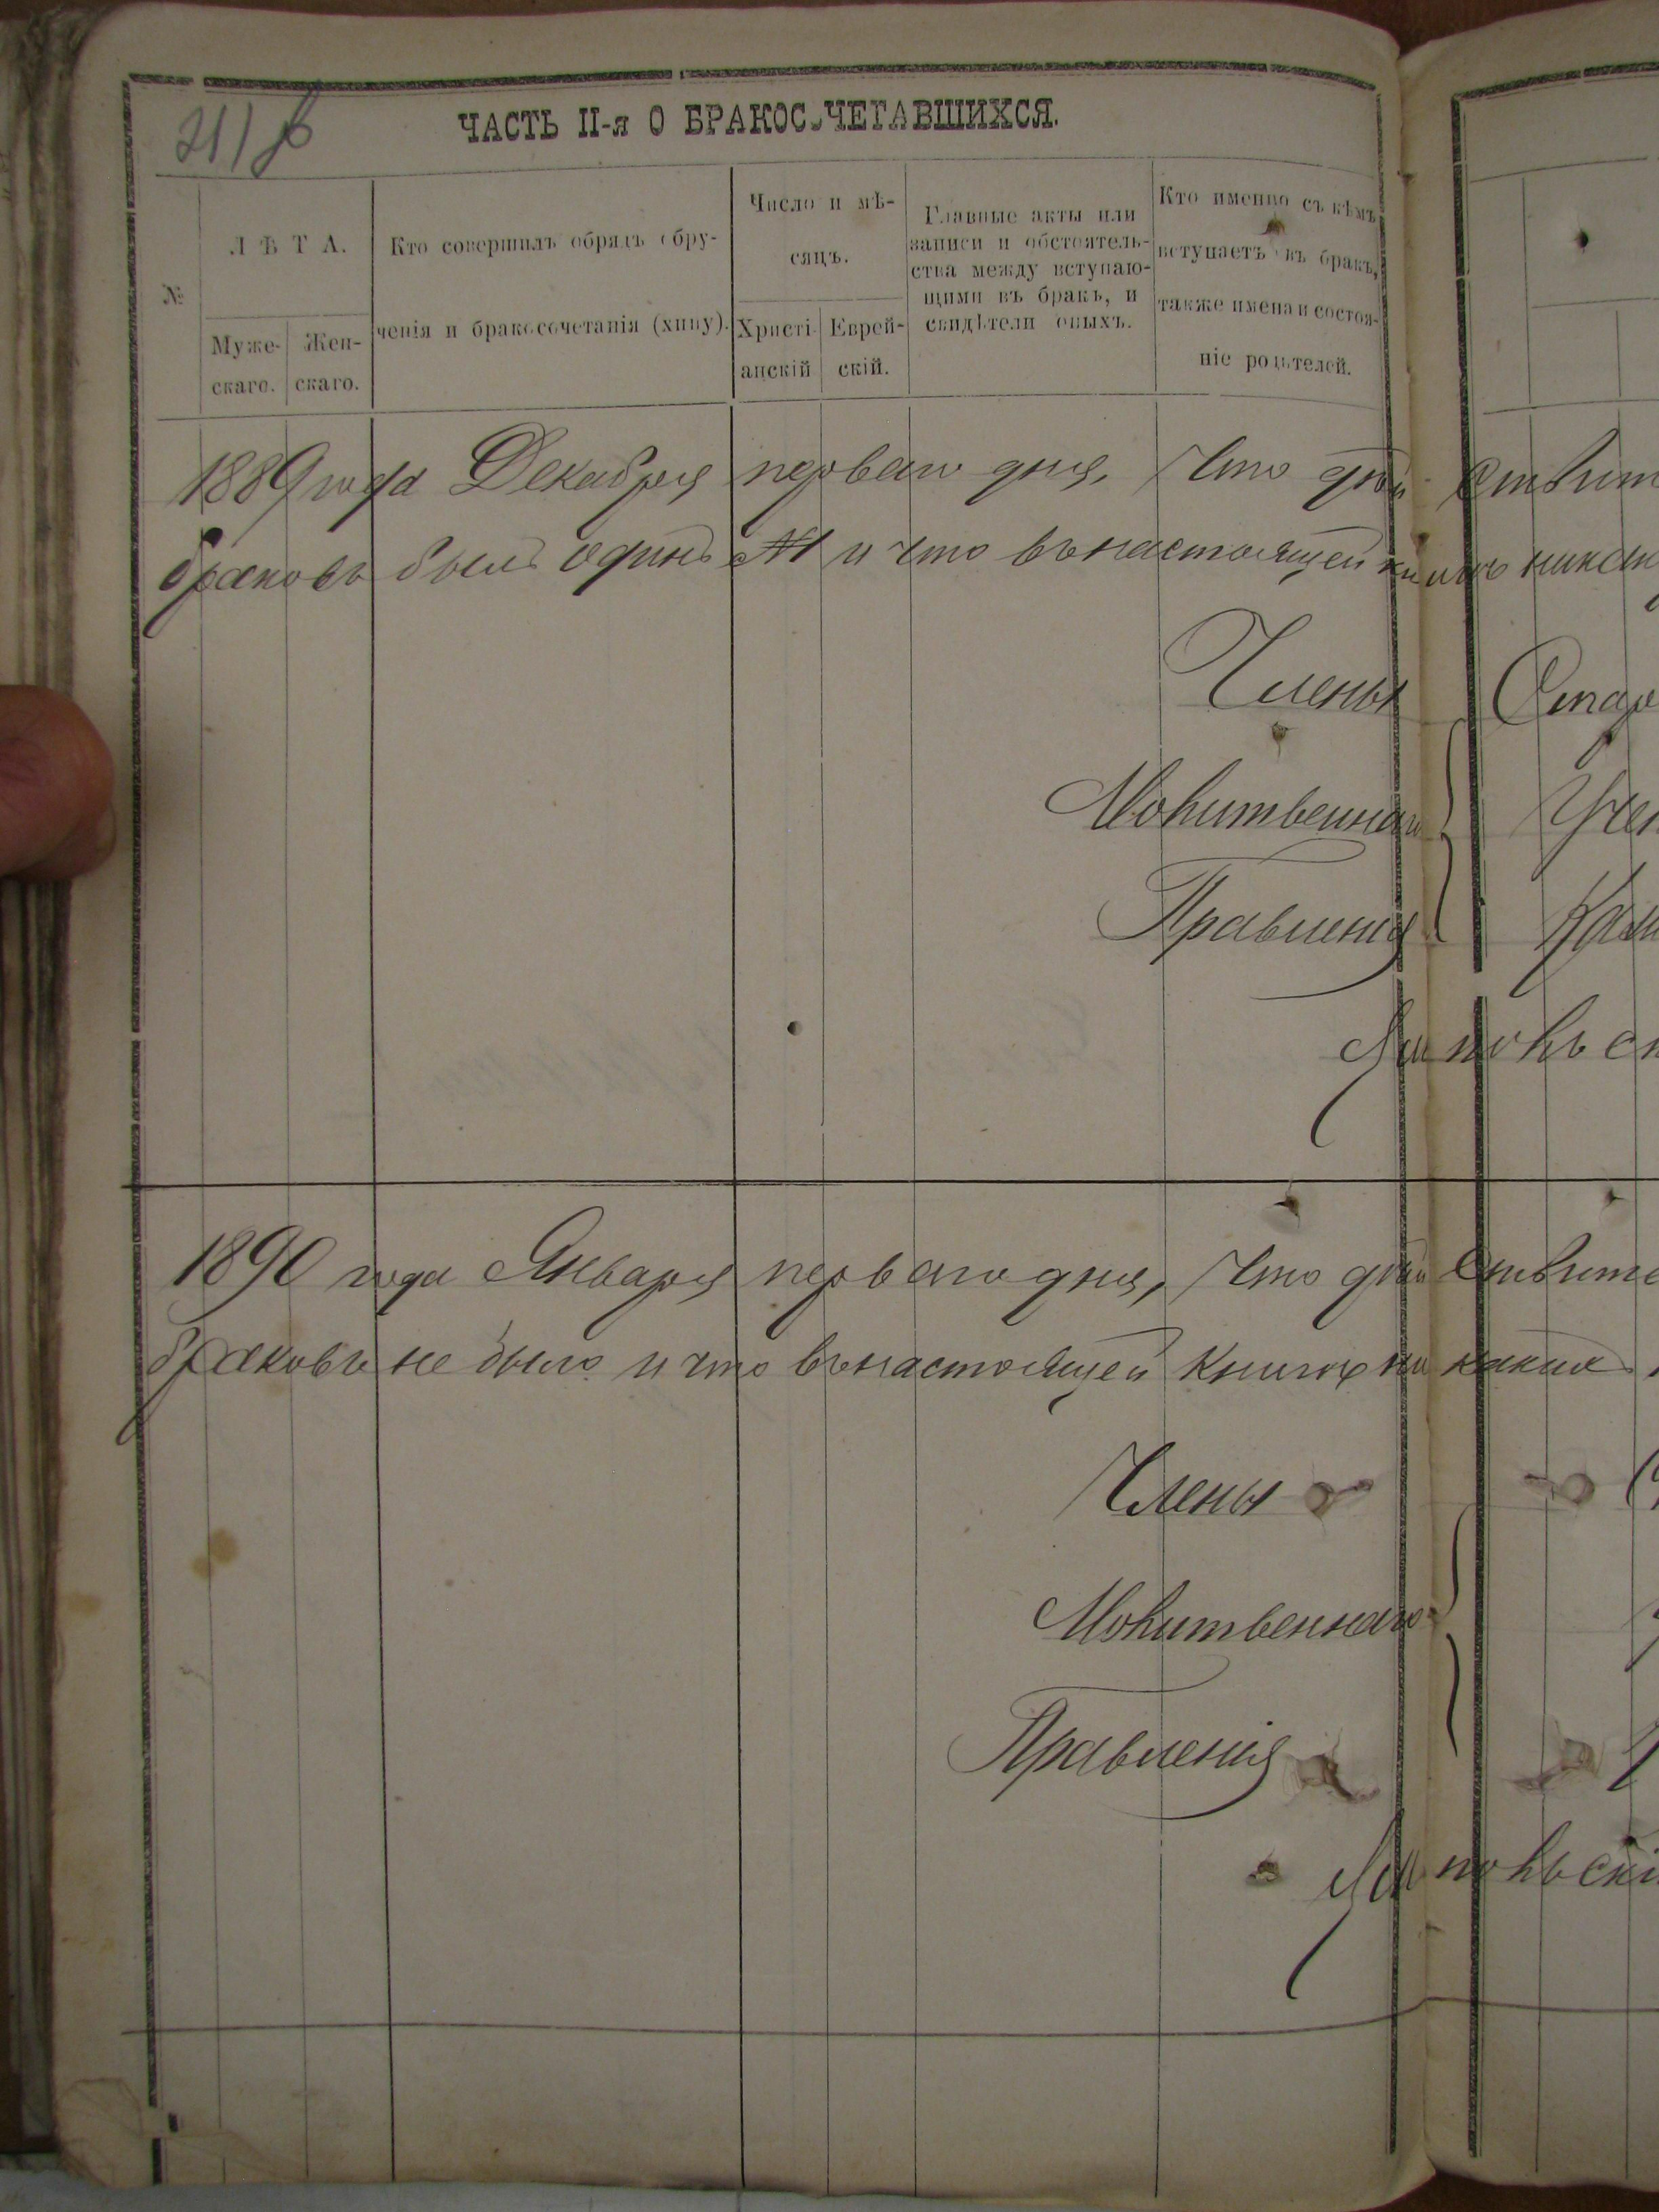 ЧАСТЬ II-я О БРАКОСОЧЕТАВШИХСЯ.
№
ЛѢТА.
Муже-
скаго.
Жен-
скаго.
Кто совершилъ обрядъ обру-
ченія и бракосочетанія (хипу).
Число и мѣ-
сяцъ.
Христі-
анскій
Еврей-
скій.
Главные акты или
записи и обстоятель-
ства между вступаю-
щими въ бракъ, и
свидѣтели оныхъ.
Кто именно съ кѣмъ
вступаетъ въ бракъ,
также имена и состоя-
ніе родителей.
1889 года Декабря перваго дня, Что дѣйствит
браковъ былъ одинъ №1 и что въ настоящей книгѣ никак
Члены Стар
Молитвеннаго Учен
Правленія Каз
1890 года Января перваго дня, Что дѣйствите
браковъ не было и что въ настоящей книгѣ никаких
Члены
Молитвеннаго
Правленія